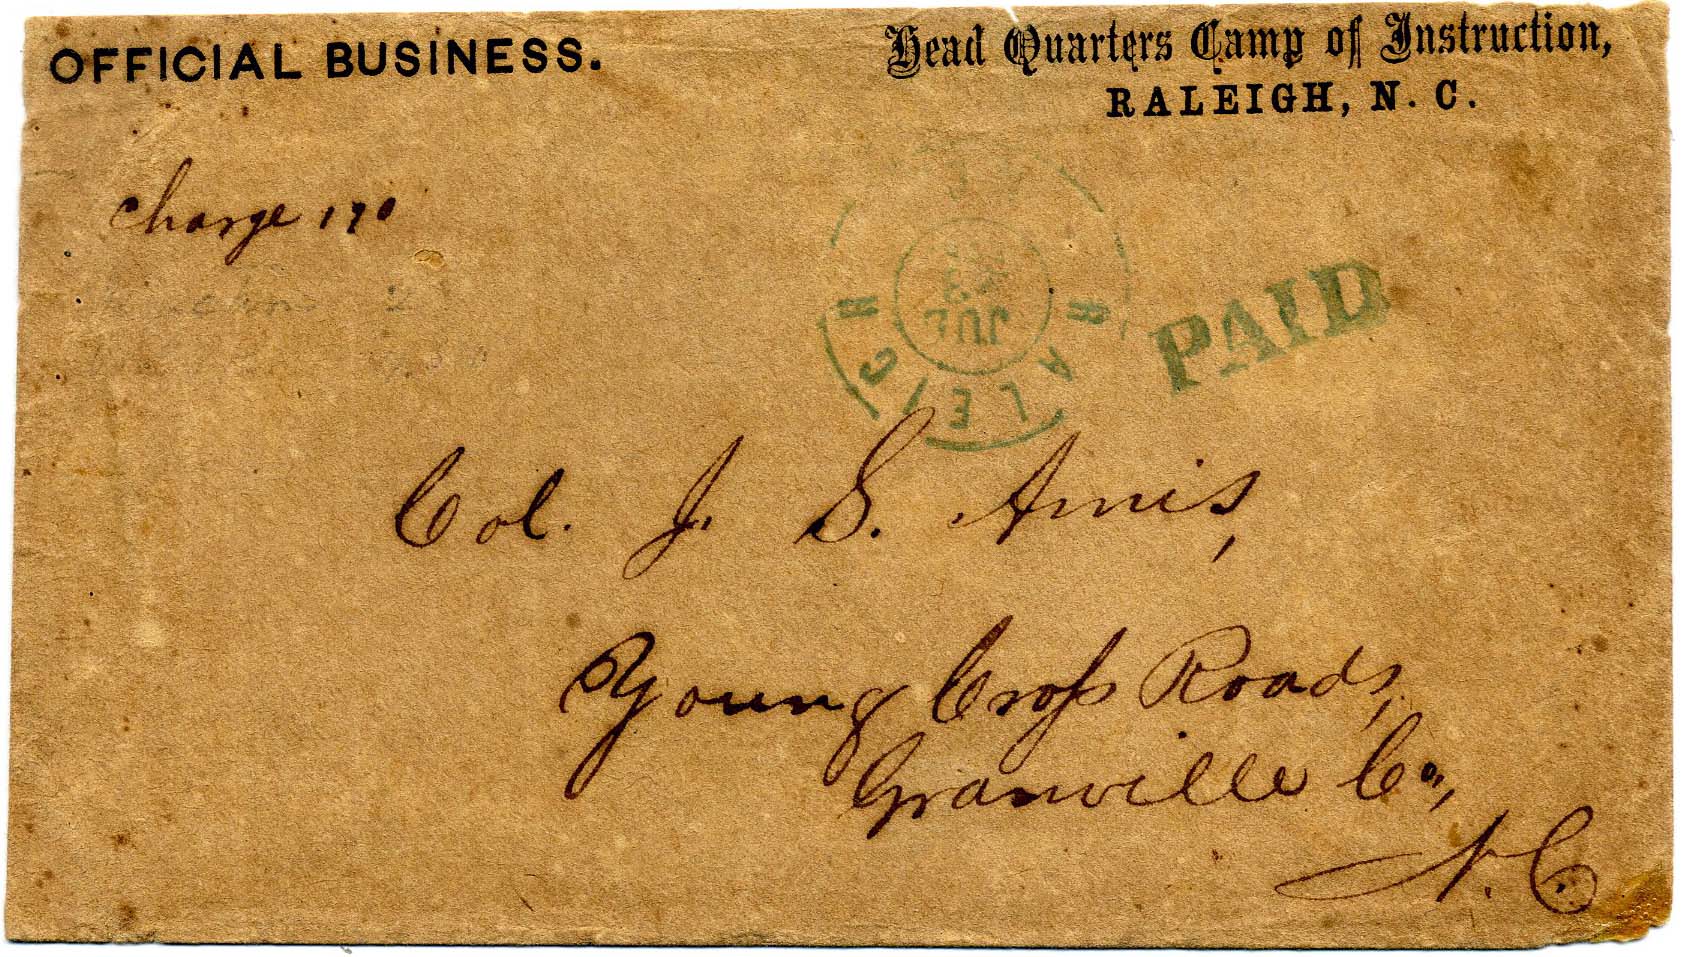 OFFICIAL BUSINESS.
Head Quarters Camp of Instruction,
RALEIGH, N. C.
Charge 170
RALEIGH
JUL
PAID
Col. J. S. Amis,
Young Cross Roads,
Granville Co.,
N. C.